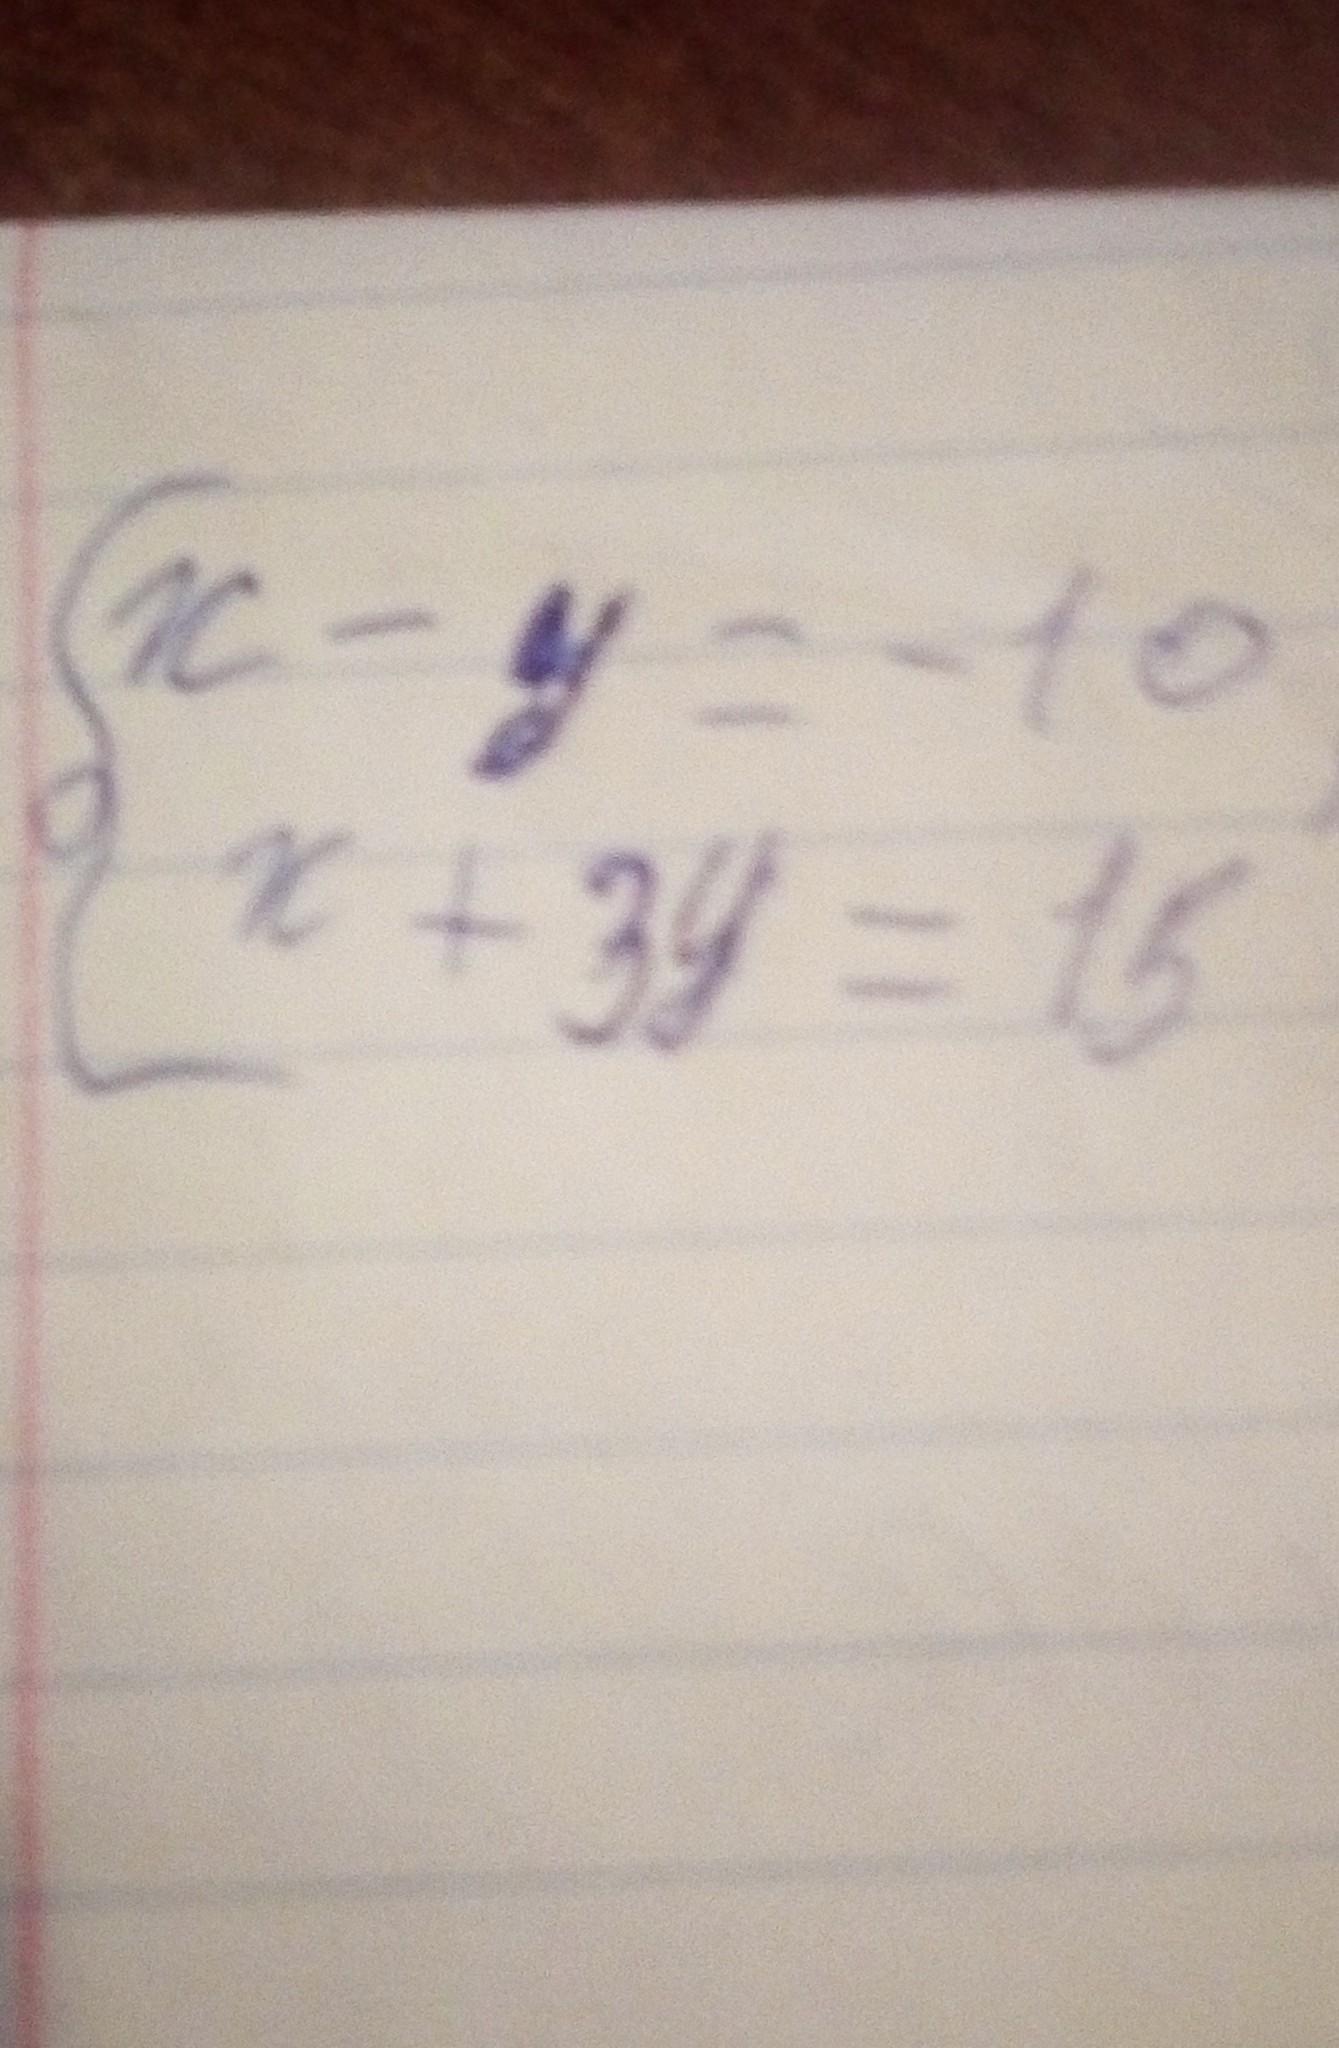 x - y = -10
x + 3y = 15